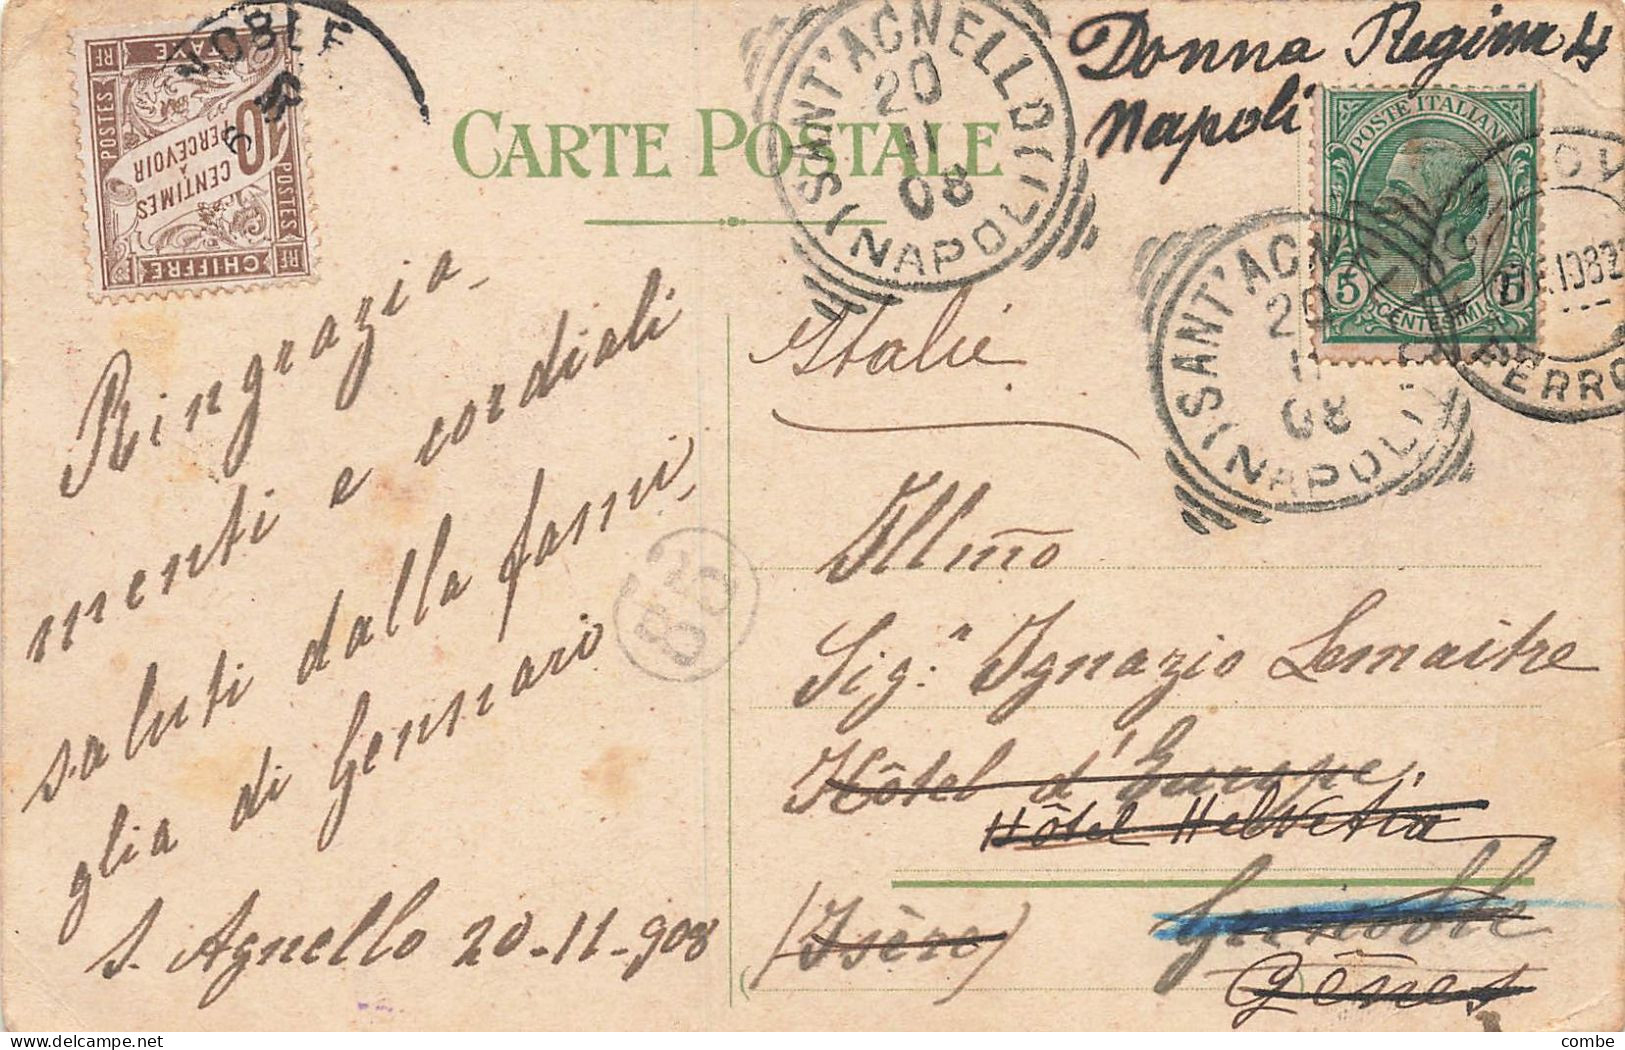 CARTE POSTALE
Donna Regina 4
Napoli
POSTES RF TAXE
10 CENTIMES
À PERCEVOIR
CHIFFRE
RF POSTES
NOBLE
SANT'AGNELLO DI
20
11
08
(NAPOLI)
POSTE ITALIANE
5 CENTESIMI 5
SANT'AGN
20
11
08
(NAPOLI)
FERRO
Italie
Ringrazia-
menti e cordiali
saluti dalla fami-
glia di Gennaro
S. Agnello 20-11-908
Illmo
Sig.r Ignazio Lemaitre
Hôtel d'Europe
Hôtel Helvetia
Grenoble
(Isère)
Gênes
combe